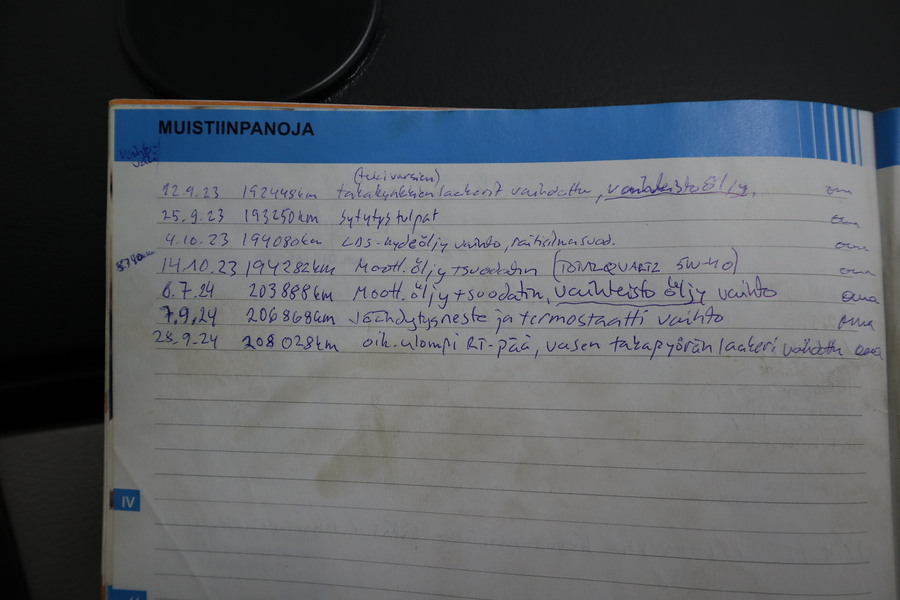 MUISTIINPANOJA
vaihto-
väli
(tukivarsien)
12.9.23 192448km takakynkkien laakerit vaihdettu, vaihteistoöljy.
oma
25.9.23 193250km sytytystulpat oma
4.10.23 194080km LDS-hydeöljy vaihto, raitisilmasuod. oma
14.10.23 194282km Moott.öljy +suodatin (TOTAL QUARTZ 5W-40) oma
6.7.24 203888km Moott.öljy+suodatin, vaihteisto öljy vaihto oma
7.9.24 206868km Jäähdytysneste ja termostaatti vaihto oma
28.9.24 208028km oik.ulompi RT-pää, vasen takapyörän laakeri vaihdettu oma
IV